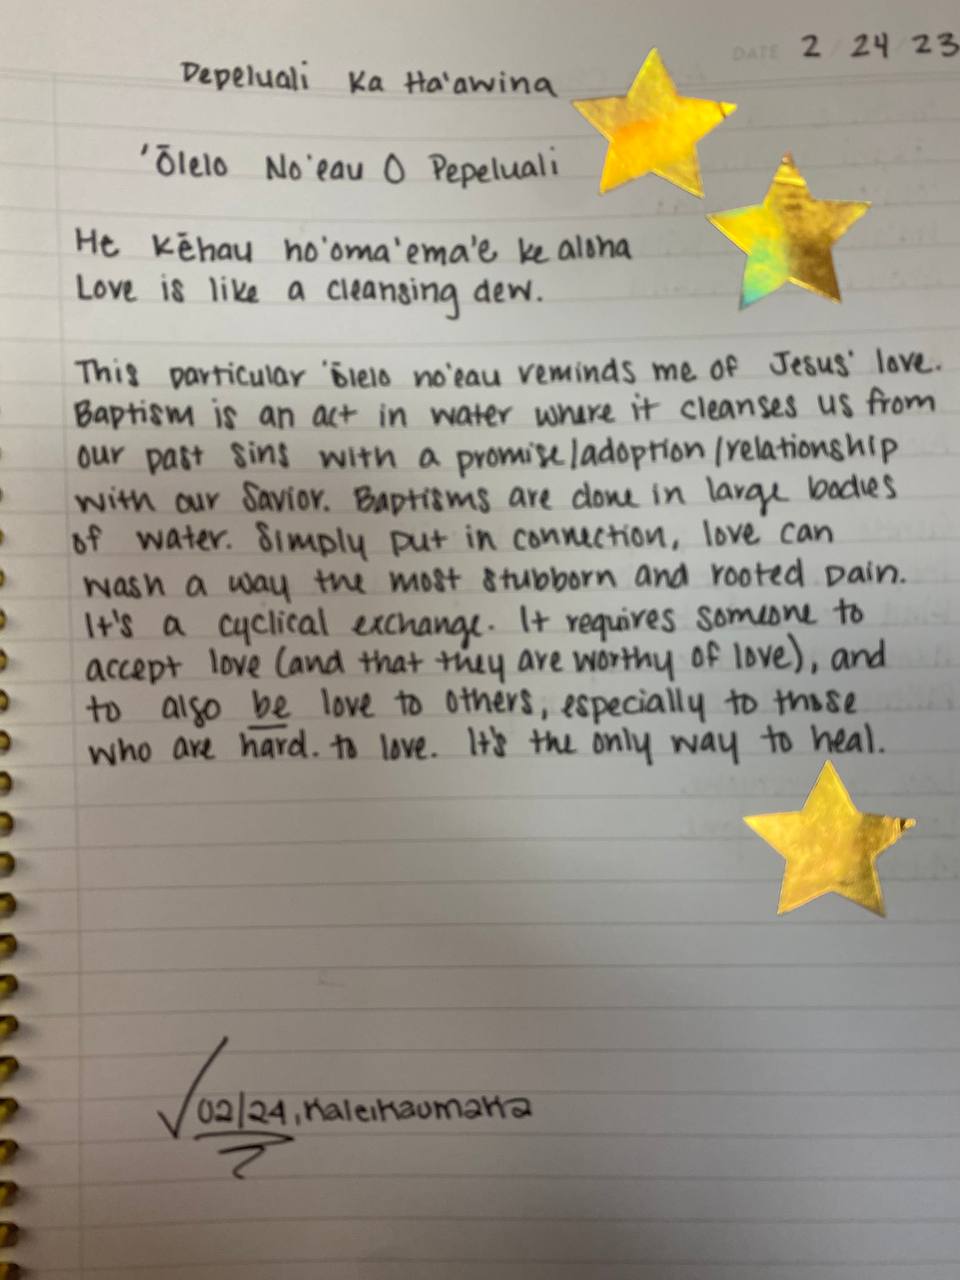 DATE 2 / 24 / 23
Pepeluali Ka Ha'awina
'Ōlelo No'eau O Pepeluali
He Kēhau ho'oma'ema'e ke aloha
Love is like a cleansing dew.
This particular 'ōlelo no'eau reminds me of Jesus' love.
Baptism is an act in water where it cleanses us from
our past sins with a promise/adoption/relationship
with our Savior. Baptisms are done in large bodies
of water. Simply put in connection, love can
wash a way the most stubborn and rooted pain.
It's a cyclical exchange. It requires someone to
accept love (and that they are worthy of love), and
to also be love to others, especially to those
who are hard. to love. It's the only way to heal.
02/24, Kaleikaumaka